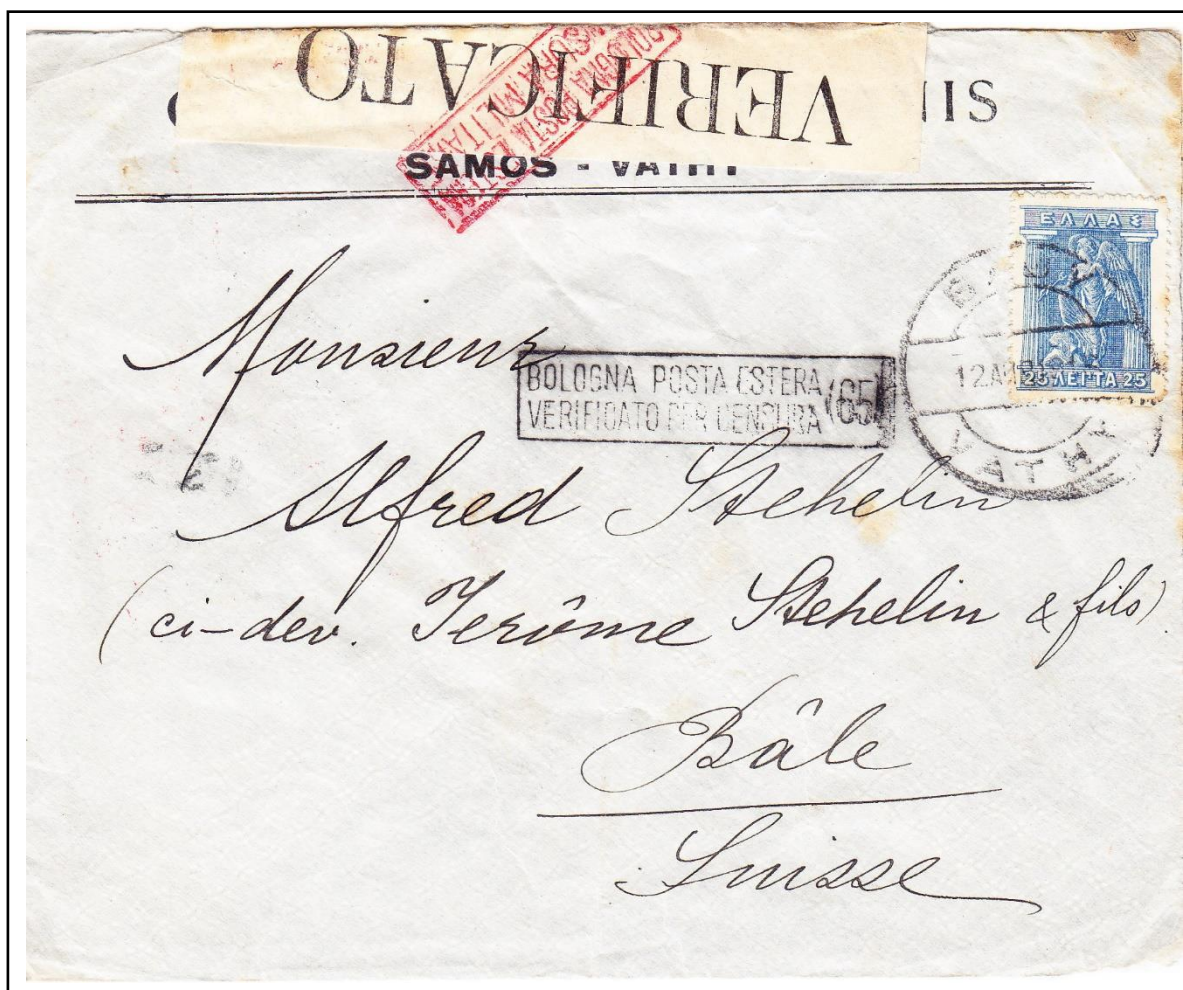 VERIFICATO
SAMOS - VATHY
ΕΛΛΑΣ
25 ΛΕΠΤΑ 25
VATHY
Monsieur
BOLOGNA POSTA ESTERA
VERIFICATO PER CENSURA (65)
Alfred Stehelin
(ci-dev. Jerôme Stehelin & fils)
Bâle
Suisse